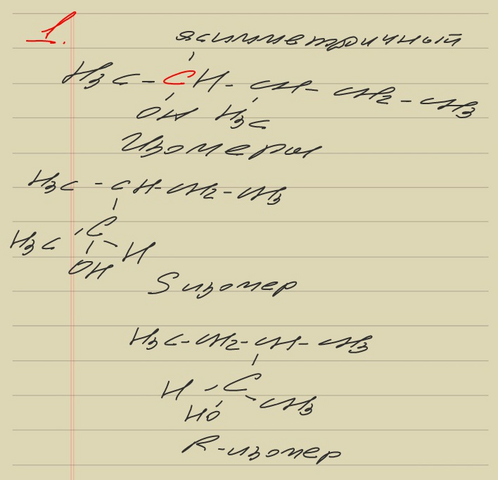 1.
ассиметричный
H3C - CH - CH - CH2 - CH3
OH H3C
Изомеры
H3C - CH - CH2 - CH3
H3C - C - H
OH
S изомер
H3C - CH2 - CH - CH3
H - C - CH3
HO
R-изомер